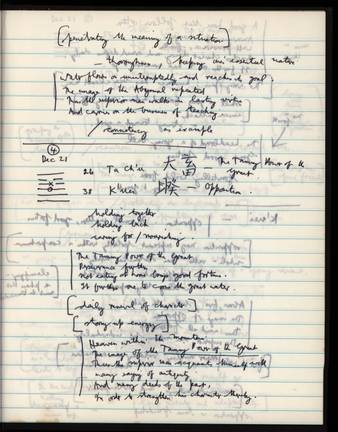 [penetrating the meaning of a situation]
— thoroughness, keeping an essential nature
Water flows on uninterruptedly and reaches its goal:
The image of the Abysmal repeated
Thus the superior man walks in lasting virtue
And carries on the business of teaching
consistency as example
④
Dec 21
26 Ta Ch'u 大畜 The Taming Power of the Great
38 K'uei 睽 — Opposition
holding together
holding back
caring for / nourishing
The Taming Power of the Great
Perseverance furthers
Not eating at home brings good fortune.
It furthers one to cross the great water.
[daily renewal of character]
[storing up energy]
Heaven within the mountain
The image of the Taming Power of the Great
Thus the superior man acquaints himself with
many sayings of antiquity
And many deeds of the past,
In order to strengthen his character thereby.